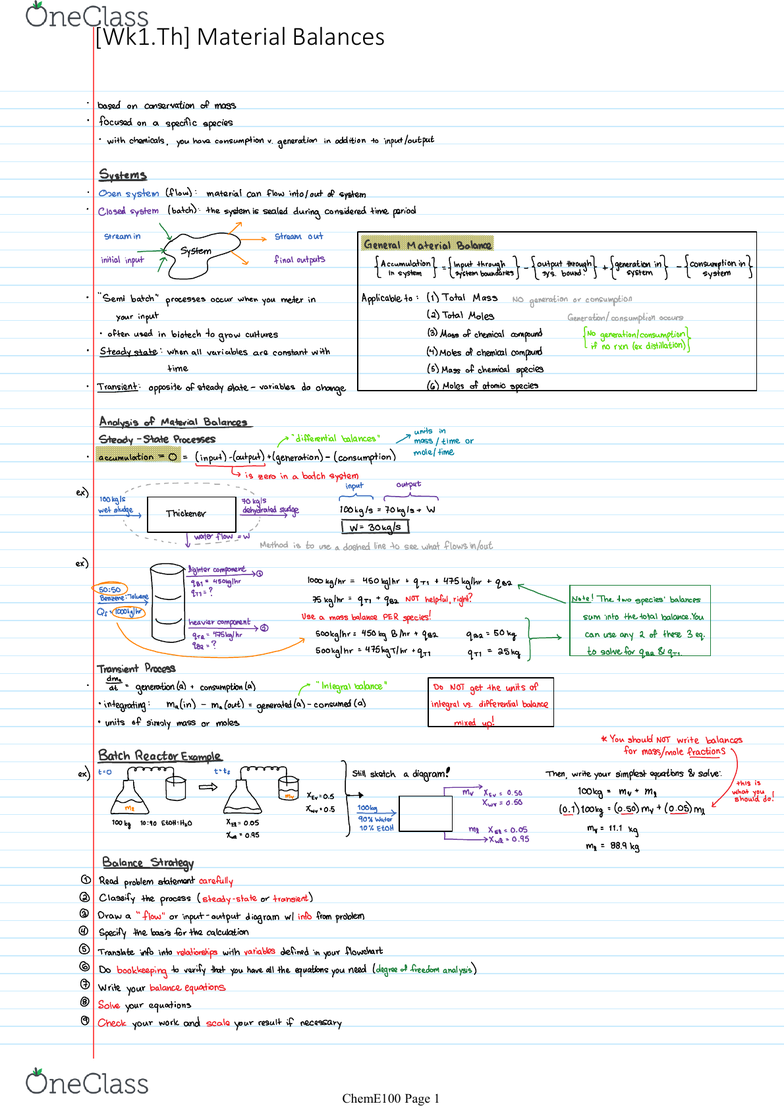 OneClass
[Wk1.Th] Material Balances
· based on conservation of mass
· focused on a specific species
· with chemicals, you have consumption v. generation in addition to input/output
Systems
· Open system (flow): material can flow into/out of system
· Closed system (batch): the system is sealed during considered time period
Stream in
initial input
System
Stream out
final outputs
General Material Balance
{Accumulation in system} = {Input through system boundaries} - {output through sys. bound.} + {generation in system} - {consumption in system}
Applicable to: (1) Total Mass NO generation or consumption
(2) Total Moles Generation/consumption occurs
(3) Mass of chemical compound
(4) Moles of chemical compound
(5) Mass of chemical species
(6) Moles of atomic species
{No generation/consumption
if no rxn (ex distillation)}
· "Semi batch" processes occur when you meter in
your input
· often used in biotech to grow cultures
· Steady state: when all variables are constant with
time
· Transient: opposite of steady state - variables do change
Analysis of Material Balances
Steady-State Processes
"differential balances"
units in
mass/time or
mole/time
· accumulation = 0 = (input)-(output)+(generation)-(consumption)
is zero in a batch system
ex)
100kg/s
wet sludge
Thickener
70 kg/s
dehydrated sludge
water flow = W
input
output
100kg/s = 70kg/s + W
W = 30kg/s
Method is to use a dashed line to see what flows in/out
ex)
50:50
Benzene:Toluene
1000kg/hr
lighter component ①
qB1 = 450kg/hr
qT1 = ?
heavier component ②
qT2 = 475kg/hr
qB2 = ?
1000 kg/hr = 450 kg/hr + qT1 + 475 kg/hr + qB2
75 kg/hr = qT1 + qB2 NOT helpful, right?
Use a mass balance PER species!
500kg/hr = 450 kg B/hr + qB2
500kg/hr = 475kgT/hr + qT1
qB2 = 50kg
qT1 = 25kg
Note! The two species' balances
sum into the total balance. You
can use any 2 of these 3 eq.
to solve for qB2 & qT1.
Transient Process
· dma/dt = generation(a) + consumption(a)
"Integral balance"
· integrating: ma(in) - ma(out) = generated(a) - consumed(a)
· units of simply mass or moles
Do NOT get the units of
integral vs. differential balance
mixed up!
Batch Reactor Example
* You should NOT write balances
for mass/mole fractions
ex) t=0
t=tf
100kg 10:90 EtOH:H2O
XEV=0.5
XWV=0.5
0.05
0.95
Still sketch a diagram!
100kg
90% Water
10% EtOH
mV XEV = 0.50
XWV = 0.50
0.05
0.95
Then, write your simplest equations & solve:
100kg = mV + ml
(0.1)100kg = (0.50)mV + (0.05)ml
mV = 11.1 kg
ml = 88.9 kg
this is
what you
should do!
Balance Strategy
① Read problem statement carefully
② Classify the process (steady-state or transient)
③ Draw a "flow" or input-output diagram w/ info from problem
④ Specify the basis for the calculation
⑤ Translate info into relationships with variables defined in your flowchart
⑥ Do bookkeeping to verify that you have all the equations you need (degree of freedom analysis)
⑦ Write your balance equations
⑧ Solve your equations
⑨ Check your work and scale your result if necessary
OneClass
ChemE100 Page 1